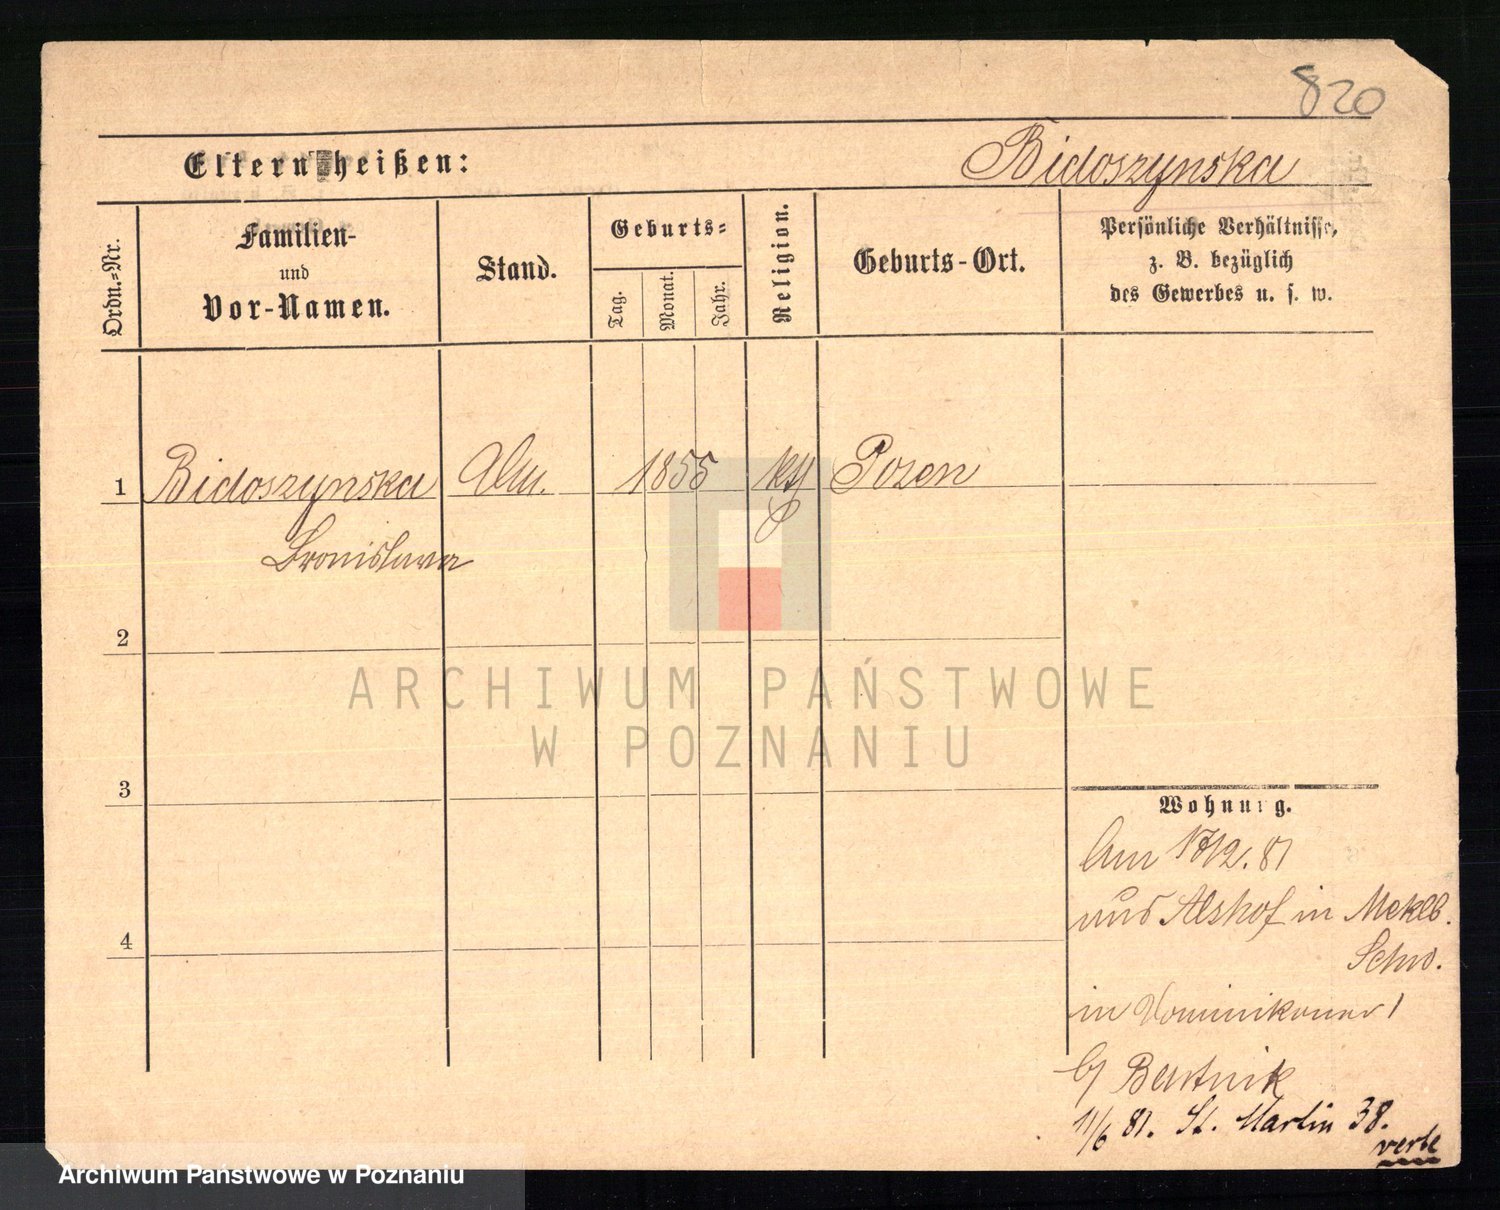 820
Eltern heißen:
Bidoszynska
Ordn.-Nr.
Familien-
und
Vor-Namen.
Stand.
Geburts-
Tag.
Monat.
Jahr.
Religion.
Geburts-Ort.
Persönliche Verhältnisse,
z. B. bezüglich
des Gewerbes u. s. w.
1 Bidoszynska 1855 kth Posen
Bronislawa
2
3
4
ARCHIWUM PAŃSTWOWE
W POZNANIU
Wohnung.
Am 17/2. 81
aus Alshof in Meklb.
Schw.
in Dominikaner 1
b/
11/6 81. St. Martin 38.
verte
Archiwum Państwowe w Poznaniu